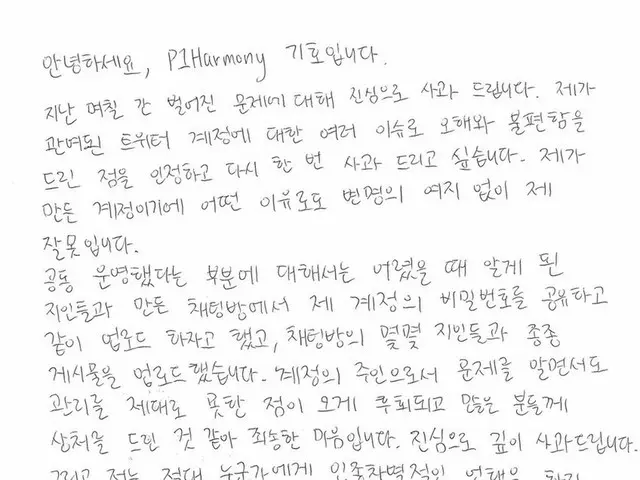 안녕하세요, P1Harmony 기호입니다.
지난 며칠 간 벌어진 문제에 대해 진심으로 사과 드립니다. 제가
관여된 트위터 계정에 대한 여러 이슈로 오해와 불편함을
드린 점을 인정하고 다시 한 번 사과 드리고 싶습니다. 제가
만든 계정이기에 어떤 이유로도 변명의 여지 없이 제
잘못입니다.
공동 운영했다는 부분에 대해서는 어렸을 때 알게 된
지인들과 만든 채팅방에서 제 계정의 비밀번호를 공유하고
같이 업로드 하자고 했고, 채팅방의 몇몇 지인들과 종종
게시물을 업로드했습니다. 계정의 주인으로서 문제를 알면서도
관리를 제대로 못한 점이 모게 후회되고 많은 분들께
상처를 드린 것 같아 죄송한 마음입니다. 진심으로 깊이 사과드립니다.
그리고 저는 절대 누군가에게 인종차별적인 언행을